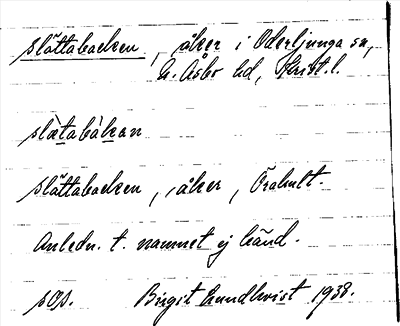 slättabacken, åker i Oderljunga sn,
N. Åsbo hd, Krist. l.
slæ̀tabàkan
slättabacken, åker, Örahult.
Anledn. t. namnet ej känd.
sOs. Birgit Lundkvist 1938.